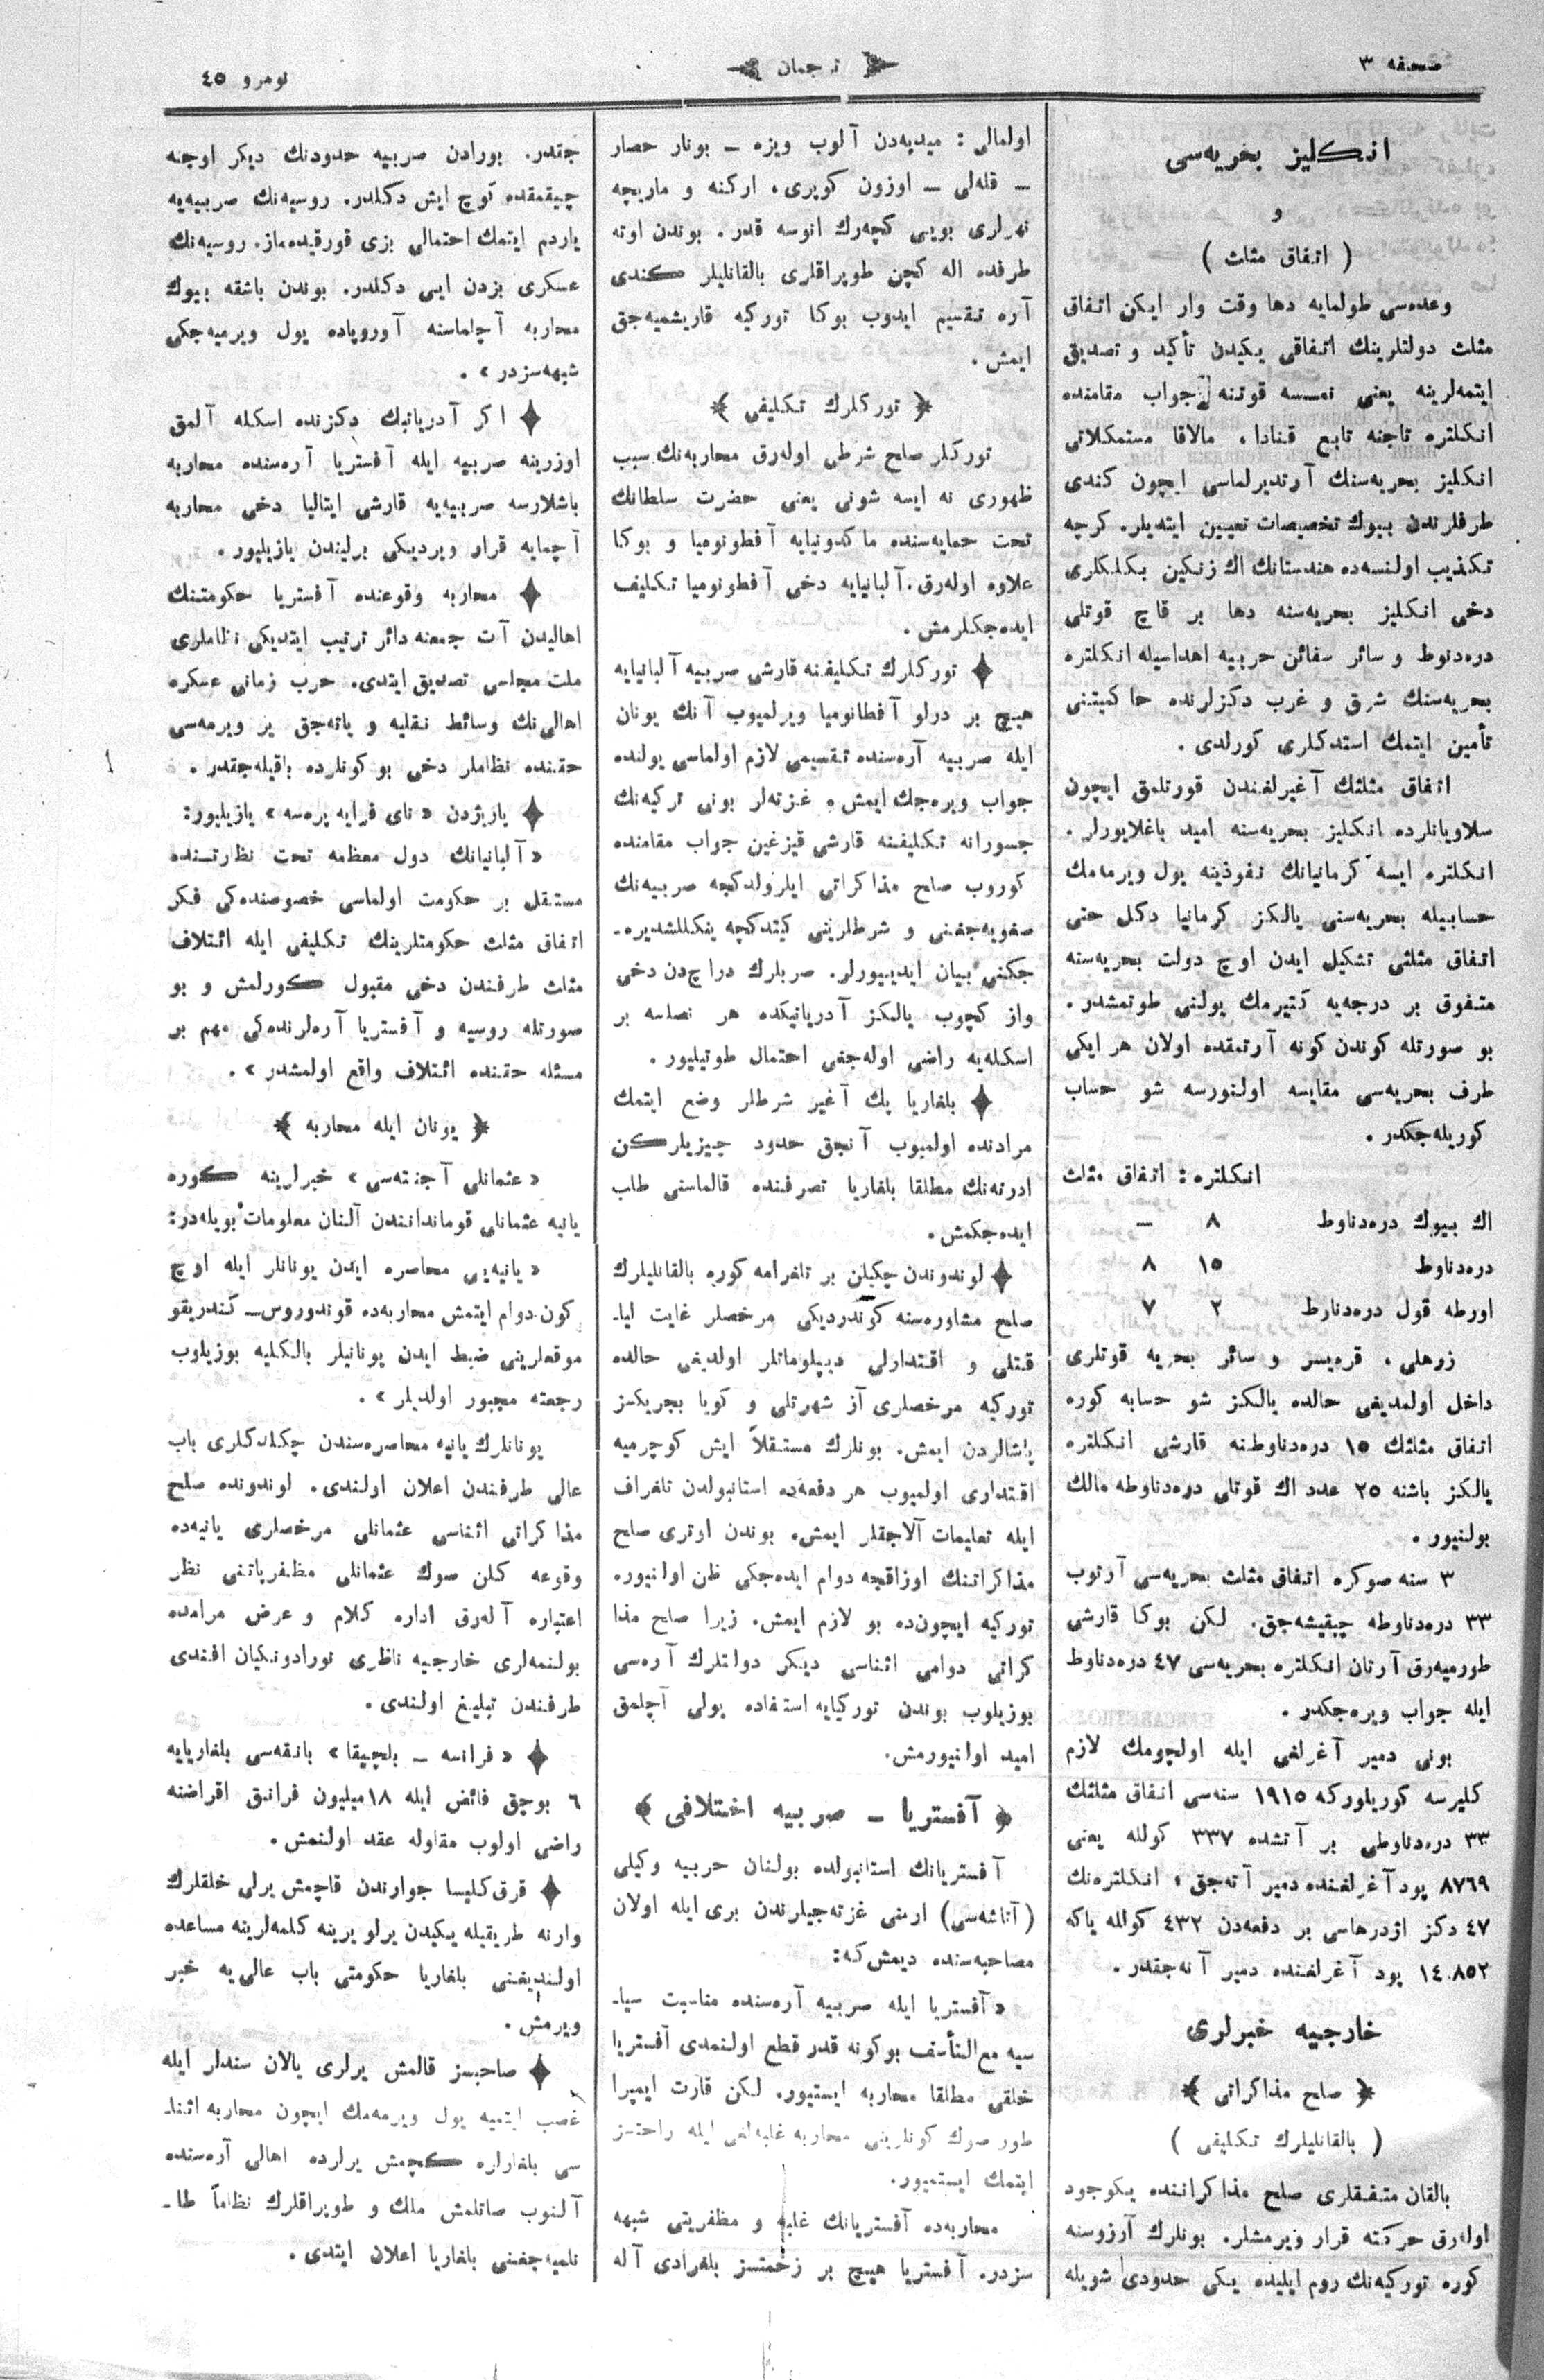 صحیفه ٣
ترجمان
نومرو ٤٥
انكليز بحریه‌سی
و
( اتفاق مثلث )
وعده‌سی طولمایه دها وقت وار ایكن اتفاق
مثلث دولتلرینك اتفاقی یكیدن تأكید و تصدیق
ایتمه‌لرینه یعنی نمسه قوتنه جواب مقامنده
انكلتره تاجنه تابع قنادا، مالاقا مستمكلاتی
انكلیز بحریه‌سنك آرتدیرلماسی ایچون كندی
طرفلرندن بیوك تخصیصات تعیین ایتدیلر. كرچه
تكذیب اولنسه‌ده هندستانك اك زنكین بكلكلری
دخی انكلیز بحریه‌سنه دها بر قاچ قوتلی
دره‌دنوط و سائر سفائن حربیه اهداسیله انكلتره
بحریه‌سنك شرق و غرب دكزلرنده حاكمیتنی
تأمین ایتمك استدكلری كورلدی.
اتفاق مثلثك آغیرلغندن قورتلمق ایچون
سلاویانلرده انكلیز بحریه‌سنه امید باغلایورلر.
انكلتره ایسه كرمانیانك نفوذینه یول ویرمه‌مك
حسابیله بحریه‌سنی یالكز كرمانیا دكل حتی
اتفاق مثلثی تشكیل ایدن اوچ دولت بحریه‌سنه
متفوق بر درجه‌یه كتیرمك یولنی طوتمشدر.
بو صورتله كوندن كونه آرتمقده اولان هر ایكی
طرف بحریه‌سی مقایسه اولنورسه شو حساب
كوریله‌جكدر.
انكلتره: اتفاق مثلث
اك بیوك دره‌دناوط ٨ —
دره‌دناوط ١٥ ٨
اورطه قول دره‌دناوط ٢ ٧
زرهلی، قره‌یسر و سائر بحریه قوتلری
داخل اولمدیغی حالده یالكز شو حسابه كوره
اتفاق مثلثك ١٥ دره‌دناوطنه قارشی انكلتره
یالكز باشنه ٢٥ عدد اك قوتلی دره‌دناوطه مالك
بولنیور.
٣ سنه صوكره اتفاق مثلث بحریه‌سی آرتوب
٣٣ دره‌دناوطه چیقیشه‌جق. لكن بوكا قارشی
طورمیه‌رق آرتان انكلتره بحریه‌سی ٤٧ دره‌دناوط
ایله جواب ویره‌جكدر.
بونی دمیر آغرلغی ایله اولچومك لازم
كلیرسه كوریلوركه ١٩١٥ سنه‌سی اتفاق مثلثك
٣٣ دره‌دناوطی بر آتشده ٣٣٧ كولله یعنی
٨٧٦٩ پود آغرلغنده دمیر آته‌جق، انكلتره‌نك
٤٧ دكز اژدرهاسی بر دفعه‌دن ٤٣٢ كولله یاكه
١٤،٨٥٢ پود آغرلغنده دمیر آته‌جقدر.
خارجیه خبرلری
﴿ صلح مذاكراتی ﴾
( بالقانلیلرك تكلیفی )
بالقان متفقلری صلح مذاكراتنده یكوجود
اوله‌رق حركته قرار ویرمشلر. بونلرك آرزوسنه
كوره توركیه‌نك روم ایلیده یكی حدودی شویله
اولمالی: میدیه‌دن آلوب ویزه — بونار حصار
— قله‌لی — اوزون كوپری، اركنه و ماریچه
نهرلری بویی كچه‌رك انوسه قدر. بوندن اوته
طرفده اله كچن طوپراقلری بالقانلیلر كندی
آره تقسیم ایدوب بوكا توركیه قاریشمیه‌جق
ایمش.
﴿ توركلرك تكلیفی ﴾
توركلر صلح شرطی اوله‌رق محاربه‌نك سبب
ظهوری نه ایسه شونی یعنی حضرت سلطانك
تحت حمایه‌سنده ماكدونیایه آفطونومیا و بوكا
علاوه اوله‌رق. آلبانیایه دخی آفطونومیا تكلیف
ایده‌جكلرمش.
توركلرك تكلیفنه قارشی صربیه آلبانیایه
هیچ بر درلو آفطانومیا ویرلمیوب آنك یونان
ایله صربیه آره‌سنده تقسیمی لازم اولماسی یولنده
جواب ویره‌جك ایمش. غزته‌لر بونی تركیه‌نك
جسورانه تكلیفنه قارشی قیزغین جواب مقامنده
كوروب صلح مذاكراتی ایلرولدكچه صربیه‌نك
صغویه‌جغنی و شرطلرینی كیتدكچه ینكللشدیره‌-
جكنی بیان ایدییورلر. صربلرك دراچ‌دن دخی
واز كچوب یالكز آدریاتیكده هر نصلسه بر
اسكله‌یه راضی اوله‌جغی احتمال طوتیلیور.
بلغاریا پك آغیر شرطلر وضع ایتمك
مرادنده اولمیوب آنجق حدود چیزیلركن
ادرنه‌نك مطلقا بلغاریا تصرفنده قالماسنی طلب
ایده‌جكمش.
لوندوندن چكیلن بر تلغرامه كوره بالقانلیلرك
صلح مشاوره‌سنه كوندردیكی مرخصلر غایت لیا-
قتلی و اقتدارلی دیپلوماتلر اولدیغی حالده
توركیه مرخصلری آز شهرتلی و كویا بجریكسز
پاشالردن ایمش. بونلرك مستقلاً ایش كوچرمیه
اقتداری اولمیوب هر دفعه‌ده استانبولدن تلغراف
ایله تعلیمات آلاجقلر ایمش. بوندن اوتری صلح
مذاكراتنك اوزاقچه دوام ایده‌جكی ظن اولنیور.
توركیه ایچون‌ده بو لازم ایمش. زیرا صلح مذا
كراتی دوامی اثناسی دیكر دولتلرك آره‌سی
بوزیلوب بوندن توركیایه استفاده یولی آچلمق
امید اولنیورمش.
﴿ آفستریا — صربیه اختلافی ﴾
آفستریانك استانبولده بولنان حربیه وكیلی
(آتاشه‌سی) ارمنی غزته‌جیلرندن بری ایله اولان
مصاحبه‌سنده دیمش كه:
« آفستریا ایله صربیه آره‌سنده مناسبت سیا-
سیه مع‌التأسف بوكونه قدر قطع اولنمدی آفستریا
خلقی مطلقا محاربه ایستیور. لكن قارت ایمپرا
طور صوك كونلرینی محاربه غلبه‌لغی ایله راحتسز
ایتمك ایستمیور.
محاربه‌ده آفستریانك غلبه و مظفریتی شبهه
سزدر. آفستریا هیچ بر زحمتسز بلغرادی آله
جقدر. بورادن صربیه حدودنك دیكر اوجنه
چیقمقده كوچ ایش دكلدر. روسیه‌نك صربیه‌یه
یاردم ایتمك احتمالی بزی قورقیده‌ماز. روسیه‌نك
عسكری بزدن ایی دكلدر. بوندن باشقه بیوك
محاربه آچلماسنه آوروپاده یول ویرمیه‌جكی
شبهه‌سزدر».
اكر آدریاتیك دكزنده اسكله آلمق
اوزرینه صربیه ایله آفستریا آره‌سنده محاربه
باشلارسه صربیه‌یه قارشی ایتالیا دخی محاربه
آچمایه قرار ویردیكی برلیندن یازیلیور.
محاربه وقوعنده آفستریا حكومتنك
اهالیدن آت جمعنه دائر ترتیب ایتدیكی نظاملری
ملت مجلسی تصدیق ایتدی. حرب زمانی عسكره
اهالی‌نك وسائط نقلیه و یاته‌جق یر ویرمه‌سی
حقنده نظاملر دخی بو كونلرده باقیله‌جقدر.
پاریژدن «نای فرایه پره‌سه» یازیلیور:
« آلبانیانك دول معظمه تحت نظارتنده
مستقل بر حكومت اولماسی خصوصنده‌كی فكر
اتفاق مثلث حكومتلرینك تكلیفی ایله ائتلاف
مثلث طرفندن دخی مقبول كورلمش و بو
صورتله روسیه و آفستریا آره‌لرنده‌كی مهم بر
مسئله حقنده ائتلاف واقع اولمشدر».
﴿ یونان ایله محاربه ﴾
« عثمانلی آجنته‌سی » خبرلرینه كوره
یانیه عثمانلی قومانداننندن آلنان معلومات بویله‌در:
« یانیه‌یی محاصره ایدن یونانلر ایله اوچ
كون دوام ایتمش محاربه‌ده قوندوروس— كندریقو
موقعلرینی ضبط ایدن یونانیلر بالكلیه بوزیلوب
رجعته مجبور اولدیلر».
یونانلرك یانیه محاصره‌سندن چكلدكلری باب
عالی طرفندن اعلان اولندی. لوندونده صلح
مذاكراتی اثناسی عثمانلی مرخصلری یانیه‌ده
وقوعه كلن صوك عثمانلی مظفریاتنی نظر
اعتباره آله‌رق اداره كلام و عرض مرامده
بولنمه‌لری خارجیه ناظری نورادونكیان افندی
طرفندن تبلیغ اولندی.
« فرانسه — بلچیقا » بانقه‌سی بلغاریایه
٦ بوچق فائض ایله ١٨ میلیون فرانق اقراضنه
راضی اولوب مقاوله عقد اولنمش.
قرق كلیسا جوارندن قاچمش یرلی خلقلرك
وارنه طریقیله یكیدن یرلو یرینه كلمه‌لرینه مساعده
اولندیغنی بلغاریا حكومتی باب عالی‌یه خبر
ویرمش.
صاحبسز قالمش یرلری یالان سندلر ایله
غصب ایتمیه یول ویرمه‌مك ایچون محاربه اثنا-
سی بلغارلره كچمش یرلرده اهالی آره‌سنده
آلنوب صاتلمش ملك و طوپراقلرك نظاماً طا-
نلمیه‌جغنی بلغاریا اعلان ایتدی.